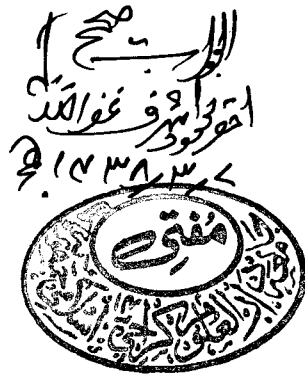 الجواب صحیح
احقر محمود اشرف غفر اللہ لہ
۲/۳/۱۴۳۸ھ
مفتی
جامعہ دارالعلوم کراچی